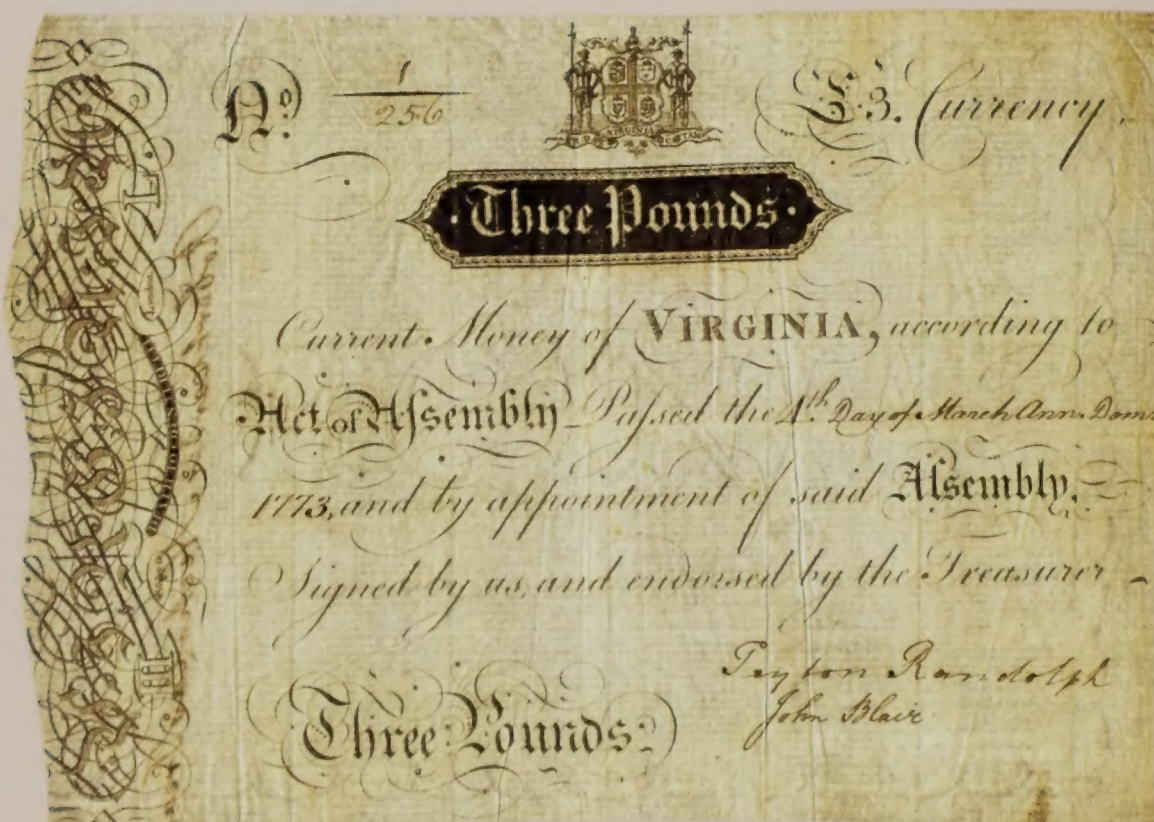 No. 1
256
£3. Currency.
VIRGINIA
·Three Pounds·
Current Money of VIRGINIA, according to
Act of Assembly Passed the 4.th Day of March Ann. Dom.
1773, and by appointment of said Assembly,
Signed by us, and endorsed by the Treasurer
Peyton Randolph
John Blair
Three Pounds.